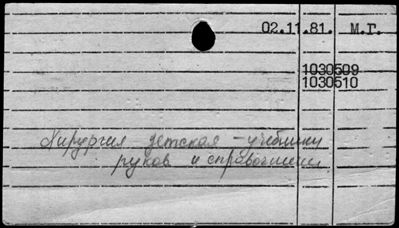 02.11.81. М.Г.
1030509
1030510
Хирургия детская - учебники
руков и справочники